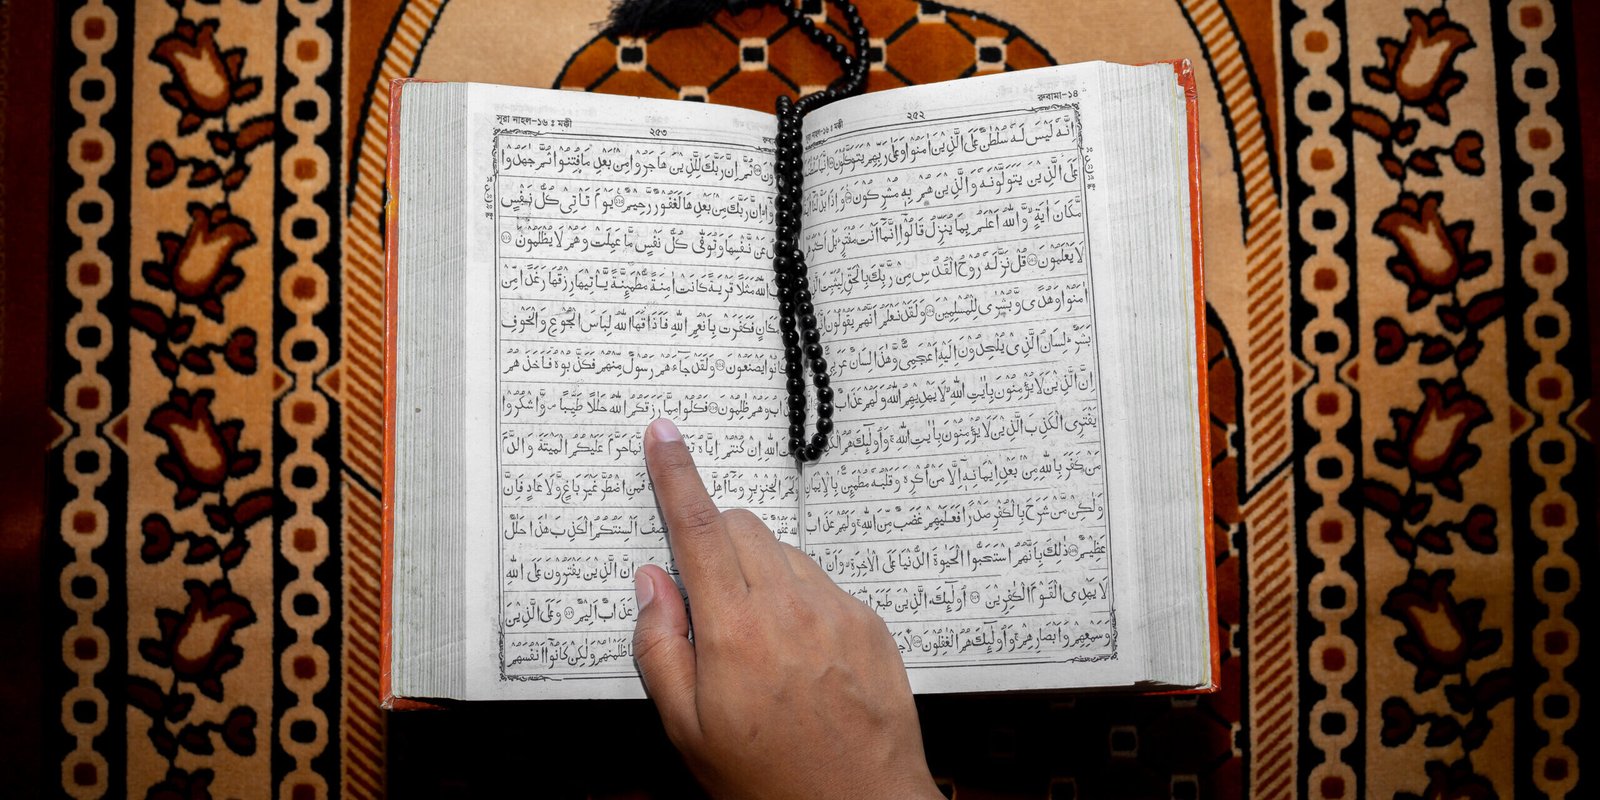 রুবামা-১৪
২৫২
নাহল-১৬ ঃ মক্কী
اِنَّهٗ لَيْسَ لَهٗ سُلْطٰنٌ عَلَى الَّذِيْنَ اٰمَنُوْا وَعَلٰى رَبِّهِمْ يَتَوَكَّلُوْنَ ۝ اِنَّمَا
عَلَى الَّذِيْنَ يَتَوَلَّوْنَهٗ وَالَّذِيْنَ هُمْ بِهٖ مُشْرِكُوْنَ ۝ وَاِذَا بَدَّلْنَا
مَّكَانَ اٰيَةٍ وَّاللّٰهُ اَعْلَمُ بِمَا يُنَزِّلُ قَالُوْٓا اِنَّمَآ اَنْتَ مُفْتَرٍ بَلْ
لَا يَعْلَمُوْنَ ۝ قُلْ نَزَّلَهٗ رُوْحُ الْقُدُسِ مِنْ رَّبِّكَ بِالْحَقِّ لِيُثَبِّتَ
اٰمَنُوْا وَهُدًى وَّبُشْرٰى لِلْمُسْلِمِيْنَ ۝ وَلَقَدْ نَعْلَمُ اَنَّهُمْ يَقُوْلُوْنَ
بَشَرٌ لِسَانُ الَّذِيْ يُلْحِدُوْنَ اِلَيْهِ اَعْجَمِيٌّ وَّهٰذَا لِسَانٌ عَرَبِيٌّ
اِنَّ الَّذِيْنَ لَا يُؤْمِنُوْنَ بِاٰيٰتِ اللّٰهِ لَا يَهْدِيْهِمُ اللّٰهُ وَلَهُمْ عَذَابٌ
يَفْتَرِى الْكَذِبَ الَّذِيْنَ لَا يُؤْمِنُوْنَ بِاٰيٰتِ اللّٰهِ وَاُولٰٓئِكَ هُمُ
مَنْ كَفَرَ بِاللّٰهِ مِنْۢ بَعْدِ اِيْمَانِهٖٓ اِلَّا مَنْ اُكْرِهَ وَقَلْبُهٗ مُطْمَئِنٌّۢ بِالْاِيْمَانِ
وَلٰكِنْ مَّنْ شَرَحَ بِالْكُفْرِ صَدْرًا فَعَلَيْهِمْ غَضَبٌ مِّنَ اللّٰهِ وَلَهُمْ عَذَابٌ
عَظِيْمٌ ۝ ذٰلِكَ بِاَنَّهُمُ اسْتَحَبُّوا الْحَيٰوةَ الدُّنْيَا عَلَى الْاٰخِرَةِ وَاَنَّ
لَا يَهْدِى الْقَوْمَ الْكٰفِرِيْنَ ۝ اُولٰٓئِكَ الَّذِيْنَ طَبَعَ اللّٰهُ
وَسَمْعِهِمْ وَاَبْصَارِهِمْ وَاُولٰٓئِكَ هُمُ الْغٰفِلُوْنَ ۝ لَا
২৫৩
সূরা নাহল-১৬ ঃ মক্কী
ثُمَّ اِنَّ رَبَّكَ لِلَّذِيْنَ هَاجَرُوْا مِنْۢ بَعْدِ مَا فُتِنُوْا ثُمَّ جٰهَدُوْا
اِنَّ رَبَّكَ مِنْۢ بَعْدِهَا لَغَفُوْرٌ رَّحِيْمٌ ۝ يَوْمَ تَاْتِيْ كُلُّ نَفْسٍ
عَنْ نَّفْسِهَا وَتُوَفّٰى كُلُّ نَفْسٍ مَّا عَمِلَتْ وَهُمْ لَا يُظْلَمُوْنَ ۝
اللّٰهُ مَثَلًا قَرْيَةً كَانَتْ اٰمِنَةً مُّطْمَئِنَّةً يَّاْتِيْهَا رِزْقُهَا رَغَدًا مِّنْ
مَكَانٍ فَكَفَرَتْ بِاَنْعُمِ اللّٰهِ فَاَذَاقَهَا اللّٰهُ لِبَاسَ الْجُوْعِ وَالْخَوْفِ
كَانُوْا يَصْنَعُوْنَ ۝ وَلَقَدْ جَآءَهُمْ رَسُوْلٌ مِّنْهُمْ فَكَذَّبُوْهُ فَاَخَذَهُمُ
وَهُمْ ظٰلِمُوْنَ ۝ فَكُلُوْا مِمَّا رَزَقَكُمُ اللّٰهُ حَلٰلًا طَيِّبًا وَّاشْكُرُوْا
اللّٰهِ اِنْ كُنْتُمْ اِيَّاهُ حَرَّمَ عَلَيْكُمُ الْمَيْتَةَ وَالدَّمَ
الْخِنْزِيْرِ وَمَآ اُهِلَّ فَمَنِ اضْطُرَّ غَيْرَ بَاغٍ وَّلَا عَادٍ فَاِنَّ
اَلْسِنَتُكُمُ الْكَذِبَ هٰذَا حَلٰلٌ
اِنَّ الَّذِيْنَ يَفْتَرُوْنَ عَلَى اللّٰهِ
عَذَابٌ اَلِيْمٌ ۝ وَعَلَى الَّذِيْنَ
ظَلَمْنٰهُمْ وَلٰكِنْ كَانُوْٓا اَنْفُسَهُمْ